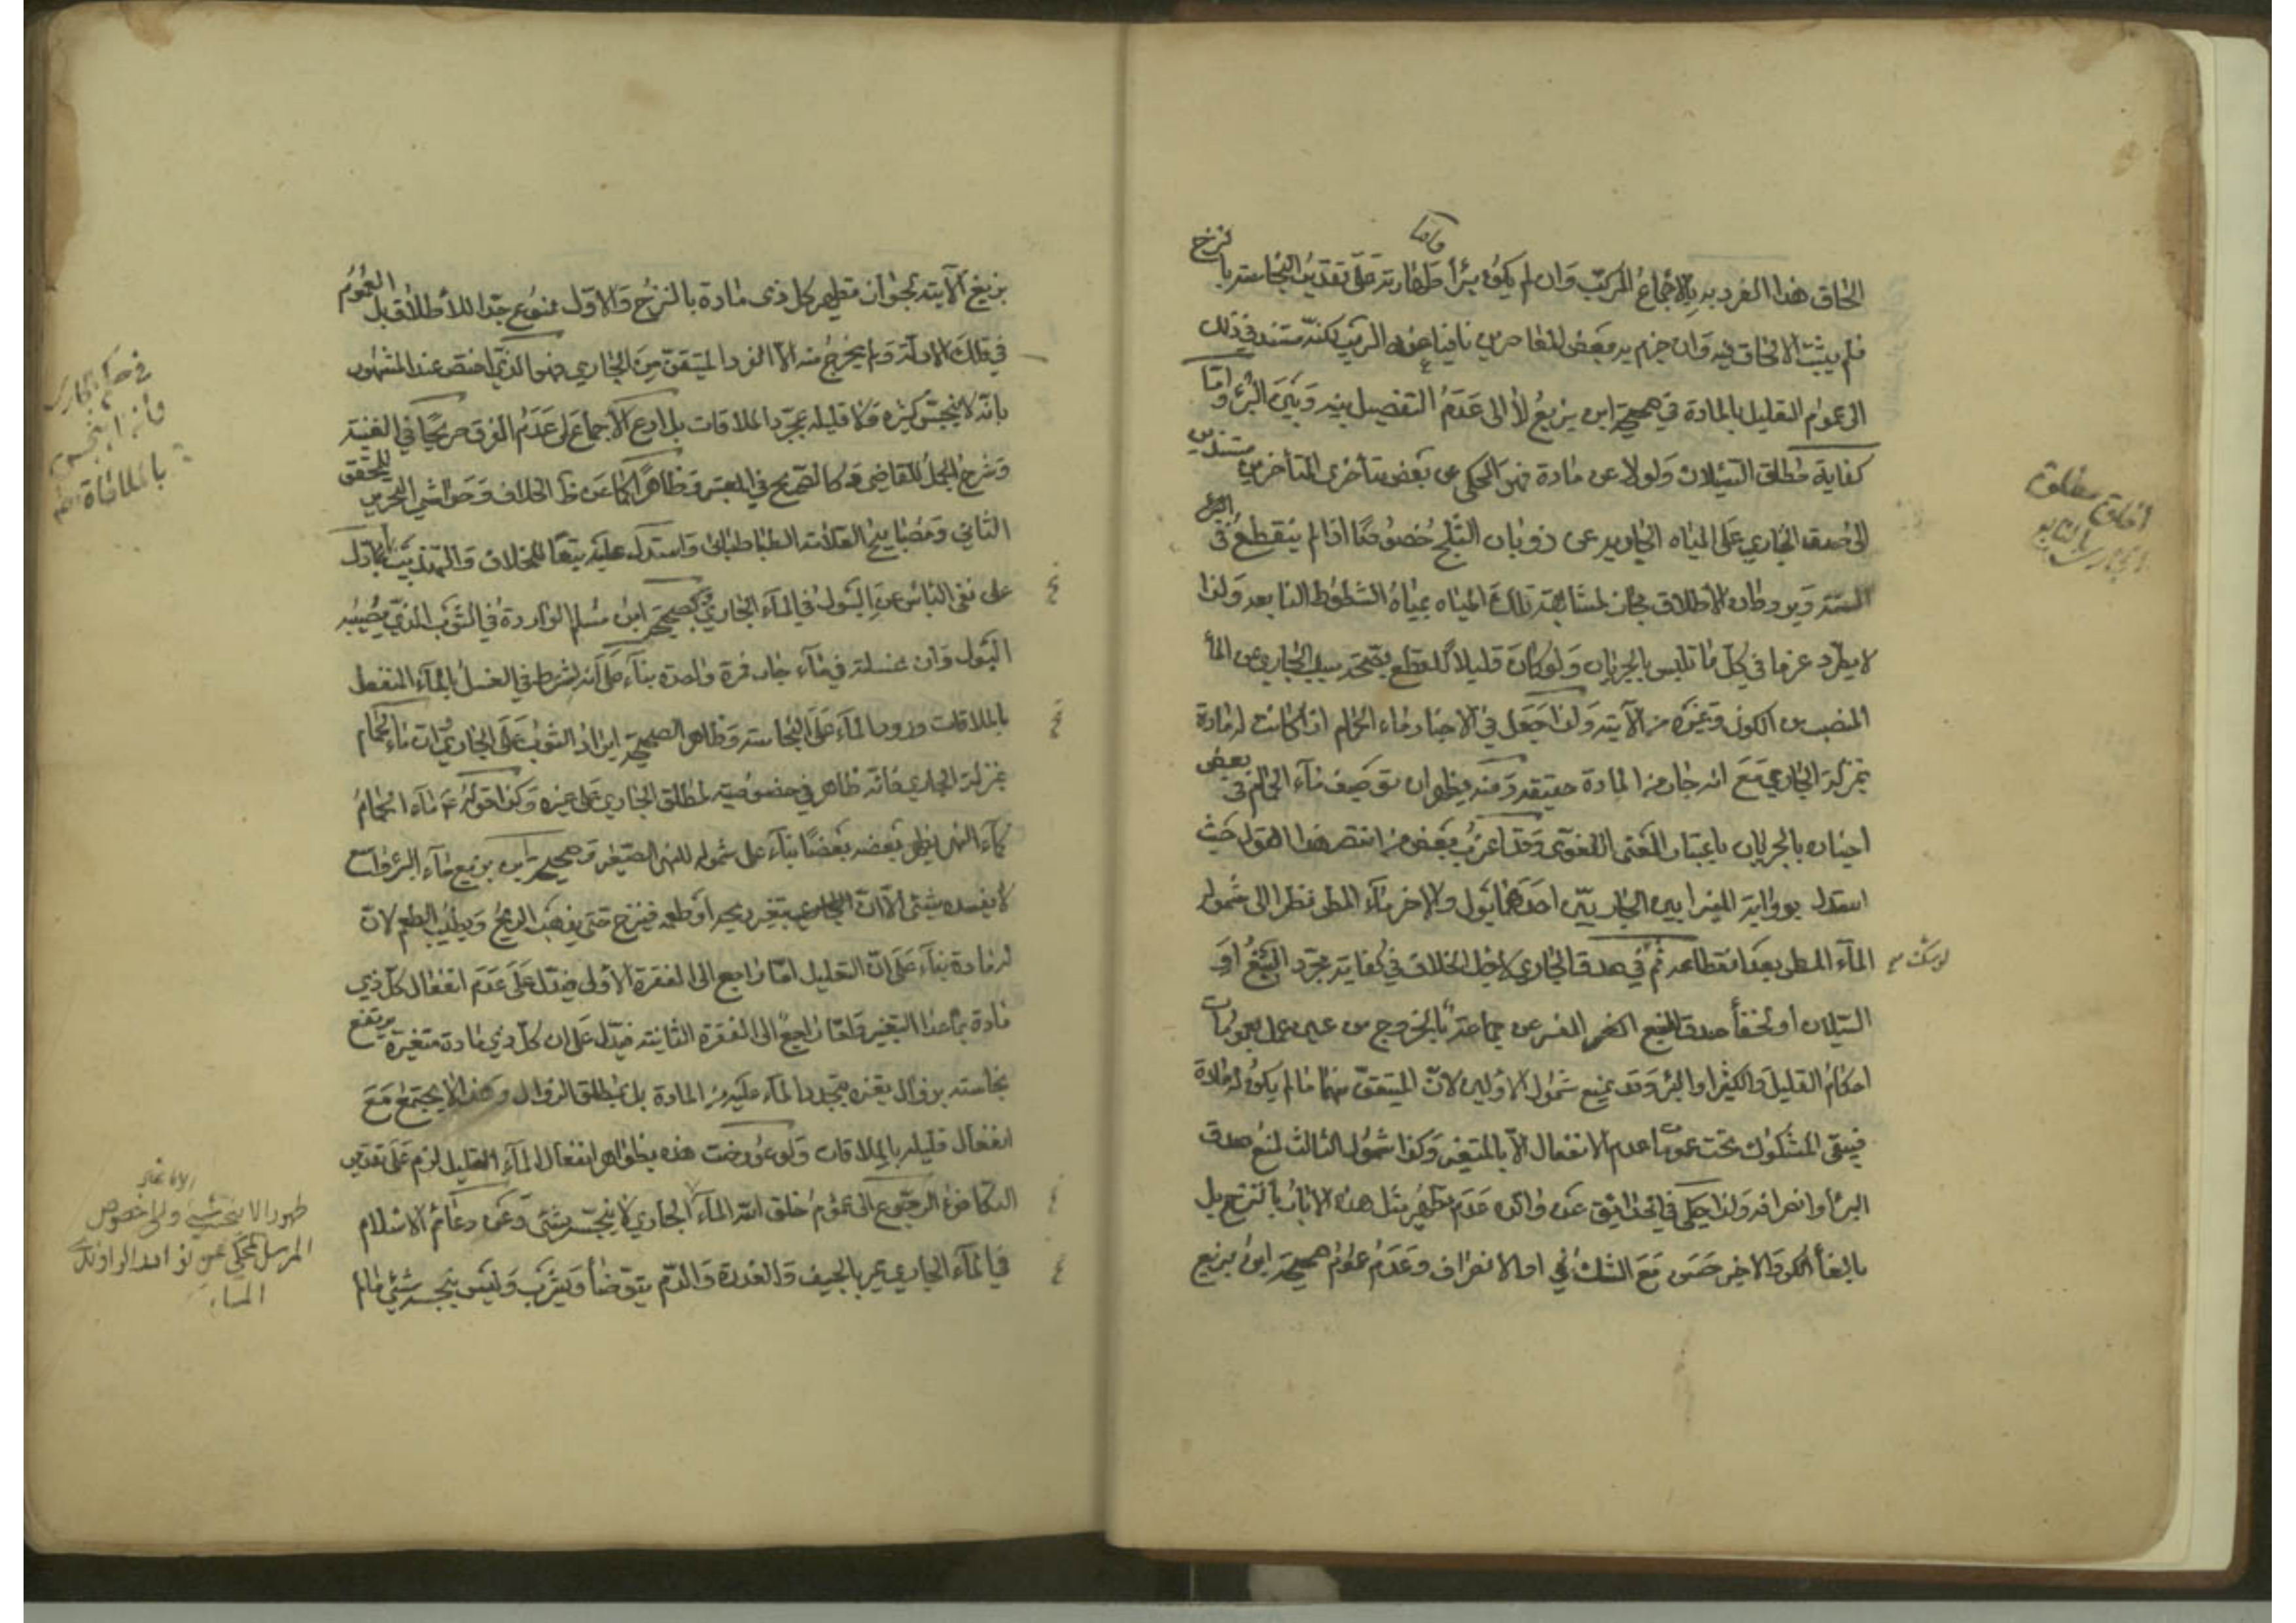 الحاق هذا الفرد به بالاجماع المركب وان لم يكن بئرا واما طهارته على تقدير النجاسة بالنزح
فلم يثبت الالحاق فيه وان جزم به بعض المعاصرين نافيا عنه الريب لكنه مستند في ذلك
الى عموم التعليل بالمادة في صحيحة ابن بزيع لا الى عدم التفصيل بينه وبين البئر واما
كفاية مطلق السيلان ولو لا عن مادة فهو المحكي عن بعض متأخري المتأخرين مستندين
الى صدق الجاري على المياه الجارية عن ذوبان الثلج خصوصا اذا لم ينقطع في
السنة ويرد بان الاطلاق مجاز لمشابهة تلك المياه بمياه الشطوط النابعة ولذا
لا يطرد عرفا في كل ما تلبس بالجريان ولو كان قليلا للقطع بصحة سلب الجاري عن الماء
المنصب من الكوز وغيره من الآنية ولذا جعل في الاخبار ماء الحمام اذا كانت له مادة
بمنزلة الجاري مع انه جار من المادة حقيقة ومنه يظهر ان توصيف ماء الحمام في بعض
احيانه بالجريان باعتبار المعنى اللغوي وقد اغرب بعض من انتصر هذا القول حيث
استدل برواية الميزابين الجاريين احدهما بول والاخر ماء المطر نظرا الى شموله
الماء المطر بعد انقطاعه ثم في صدق الجاري لاجل الخلاف في كفاية مجرد النبع او
لو شك
السيلان او لخفاء صدق النبع المفسر عن جماعة بالخروج من عين عمل بعمومات
احكام القليل والكثير او البئر وقد يمنع شمول الاولين لان المتيقن منهما ما لم يكن له مادة
فيبقى المشكوك تحت عموم عدم الانفعال الا بالتغير وكذا شمول الثالث لمنع صدق
البئر او انصرافه ولذا حكي في الحدائق عن والده عدم تطهير مثل هذه الابار بالنزح بل
بالقاء الكر والاخير حسن مع الشك في الانصراف وعدم عموم صحيحة ابن بزيع
اطلاق مطلق
بزيع الآتية لجواز تطهير كل ذي مادة بالنزح والاول ممنوع جدا للاطلاق بل العموم
في تلك الادلة ولم يخرج منه الا الفرد المتيقن من الجاري فهو الذي اختص عند المشهور
بانه لا ينجس كثيره ولا قليله بمجرد الملاقات بل ادعي الاجماع على عدم الفرق صريحا في الغنية
وشرح الجمل للقاضي كالتصريح في المعتبر وظاهرا كما عن ظ الخلاف وحواشي التحرير للمحقق
الثاني ومصابيح العلامة الطباطبائي واستدل عليه تبعا للخلاف والتهذيب بما دل
على نفي البأس عن البول في الماء الجاري كصحيحة ابن مسلم الواردة في الثوب الذي يصيبه
البول وان غسلته في ماء جار فمرة واحدة بناء على انه يشترط في الغسل بالماء المنفعل
بالملاقات ورود الماء على النجاسة وظاهر الصحيحة ايراد الثوب على الجاري وان ماء الحمام
بمنزلة الجاري فانه ظاهر في خصوصية لمطلق الجاري على غيره وكذا قوله ع ماء الحمام
كماء النهر يطهر بعضه بعضا بناء على شموله للنهر الصغير وصحيحة ابن بزيع ماء البئر واسع
لا يفسده شيء الا ان يتغير ريحه او طعمه فينزح حتى يذهب الريح ويطيب الطعم لان
له مادة بناء على ان التعليل اما راجع الى الفقرة الاولى فيدل على عدم انفعال كل ذي
مادة بما عدا التغير واما راجع الى الفقرة الثانية فيدل على ان كل ذي مادة متغيرة يرتفع
نجاسته بزوال تغيره بتجدد الماء عليه من المادة بل بمطلق الزوال وهذا لا يجتمع مع
انفعال قليله بالملاقات ولو عورضت هذه بظواهر انفعال الماء القليل لزم على تقدير
التكافؤ الرجوع الى عموم خلق الله الماء الجاري لا ينجسه شيء وعن دعائم الاسلام
في الماء الجاري يمر بالجيف والعذرة والدم يتوضأ ويشرب وليس ينجسه شيء مالم
في حكم الجاري
وأنه لا ينجس
بالملاقاة
طهورا لا ينجسه شيء والى خصوص
المرسل المحكي عن نوادر الراوندي
الماء